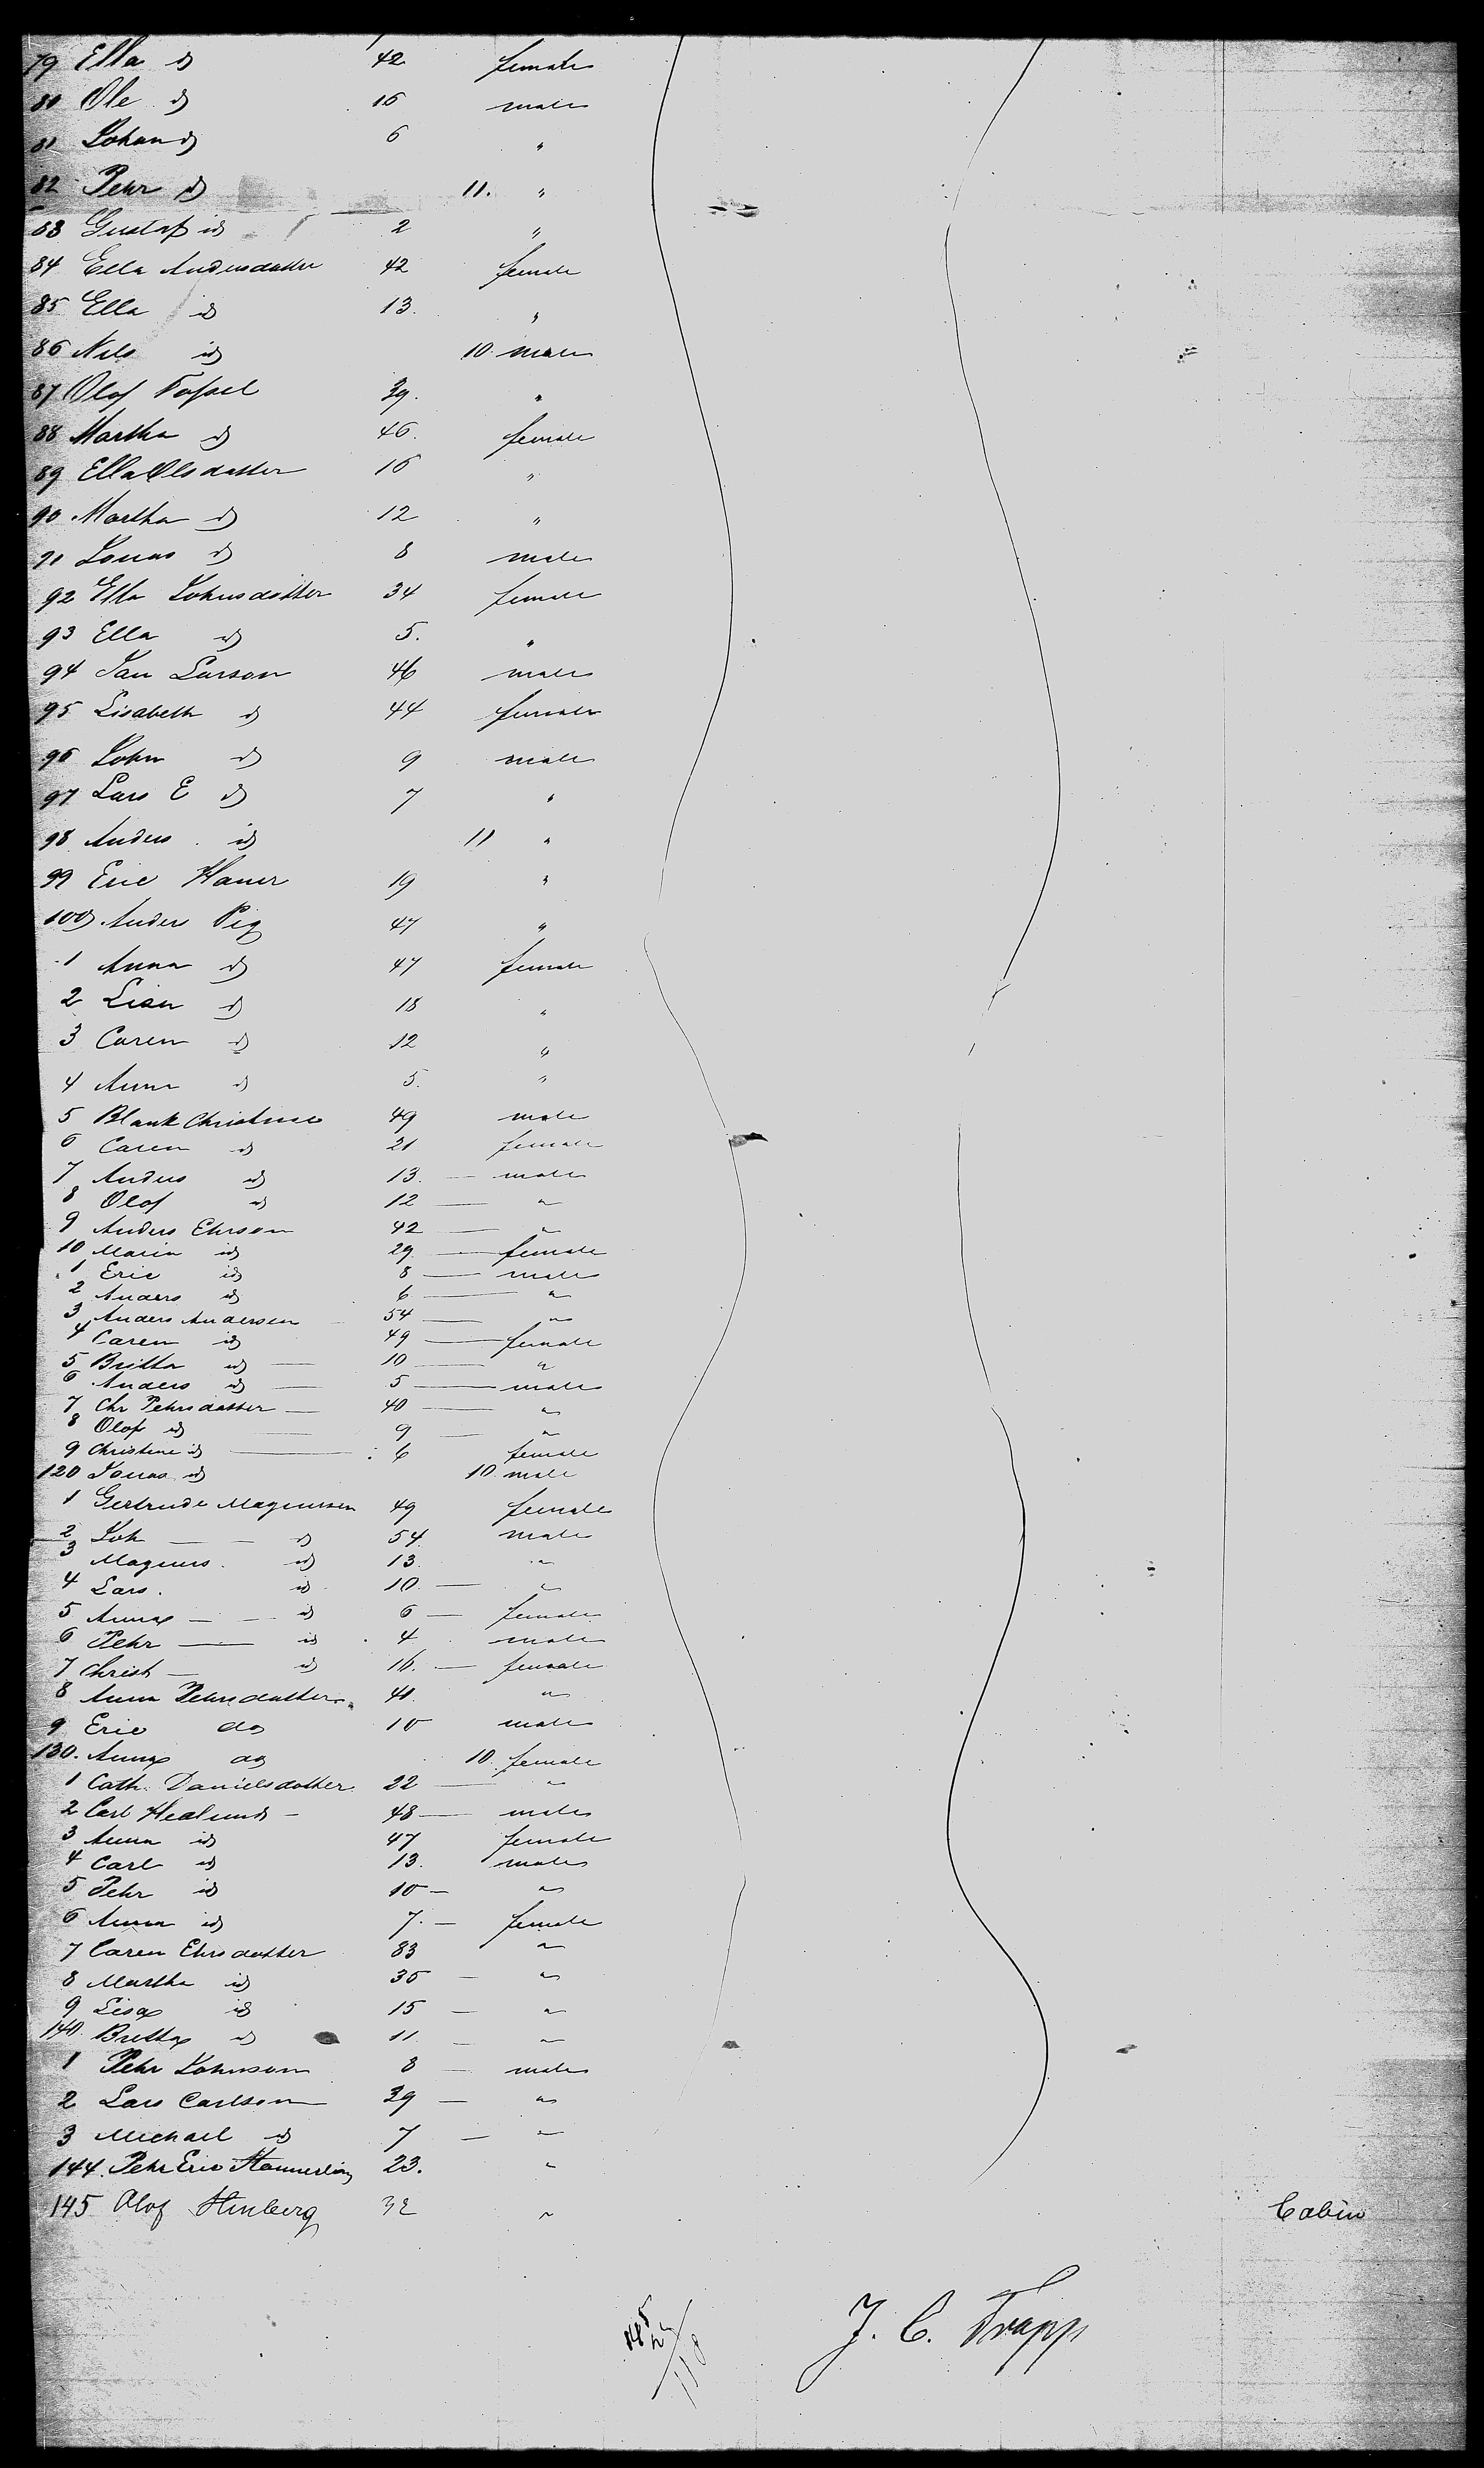 79 Ella id 42 female
80 Ole id 16 male
81 Johan id 6 "
82 Pehr id 11. "
83 Gustaf id 2 "
84 Ella Andersdatter 42 female
85 Ella id 13. "
86 Nils id 10. male
87 Olof 39. "
88 Martha id 46. female
89 Ella Olsdatter 16 "
90 Martha id 12 "
91 Jonas id 8 male
92 Ella Johnsdotter 34 female
93 Ella id 5. "
94 Jan Larson 46 male
95 Lisabeth id 44 female
96 John id 9 male
97 Lars E id 7 "
98 Anders id 11 "
99 Eric Haner 19 "
100 Anders Pig 47 "
1 Anna id 47 female
2 Lisa id 18 "
3 Caren id 12 "
4 Anna id 5. "
5 Blank 49 male
6 Caren id 21 female
7 Anders id 13. — male
8 Olof id 12 — "
9 Anders Ehrson 42 — "
10 Maria id 29 — female
1 Eric id 8 — male
2 Anders id 6 — "
3 Anders Andersen 54 — "
4 Caren id 49 — female
5 Britta id — 10 — "
6 Anders id — 5 — male
7 Chr Pehrsdatter — 40 — "
8 Olof id 9 — "
9 Christine id — 6 female
120 Jonas id 10. male
1 Gertrude Magnussen 49 female
2 Joh — id 54. male
3 Magnus. id 13 "
4 Lars. id 10. — "
5 Anna — id 6 — female
6 Pehr — id 4 male
7 Christ — id 16. — female
8 Anna Pehrsdatter 41. "
9 Eric do 10 male
130. Anna do 10. female
1 Cath. Danielsdotter 22 — "
2 Carl Hedlund — 48 — male
3 Anna id 47 female
4 Carl id 13. male
5 Pehr id 10 — "
6 Anna id 7. — female
7 Caren Ehrsdotter 83 "
8 Martha id 35 — "
9 Lisa id 15 — "
140. Britta id 11. — "
1 Pehr Johnson 8 — male
2 Lars Carlson 39 — "
3 Michael id 7 — "
144. Pehr Eric 23. "
145 Olof 32 " Cabin
J. C. Trapp